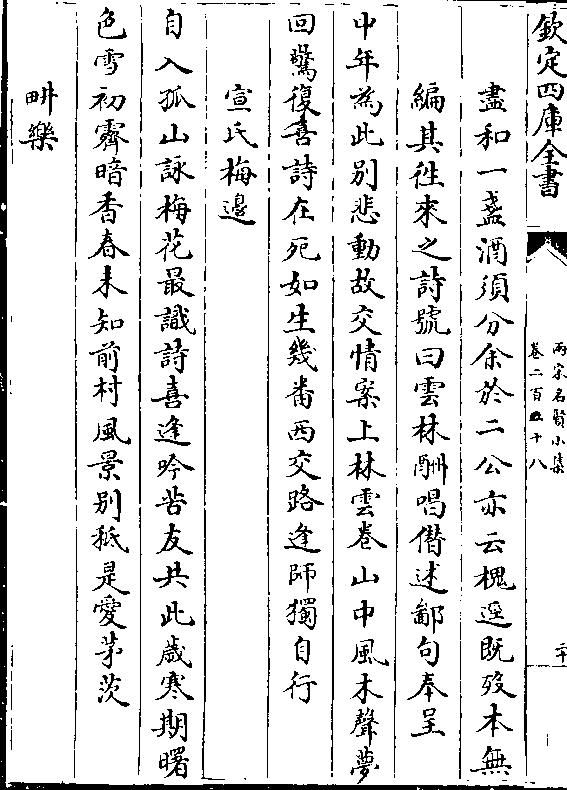 欽定四庫全書
兩宋名賢小集
卷二百五十八
二十
盡和一盞酒須分余於二公亦云槐逕既歿本無
編其徃來之詩號曰雲林酬唱僣述鄙句奉呈
中年為此别悲動故交情案上林雲卷山中風木聲夢
回驚復喜詩在死如生幾畨西交路逢師獨自行
宣氏梅邉
自入孤山詠梅花最識詩喜逢吟苦友共此歲寒期曙
色雪初霽暗香春未知前村風景别秪是愛茅茨
畊樂